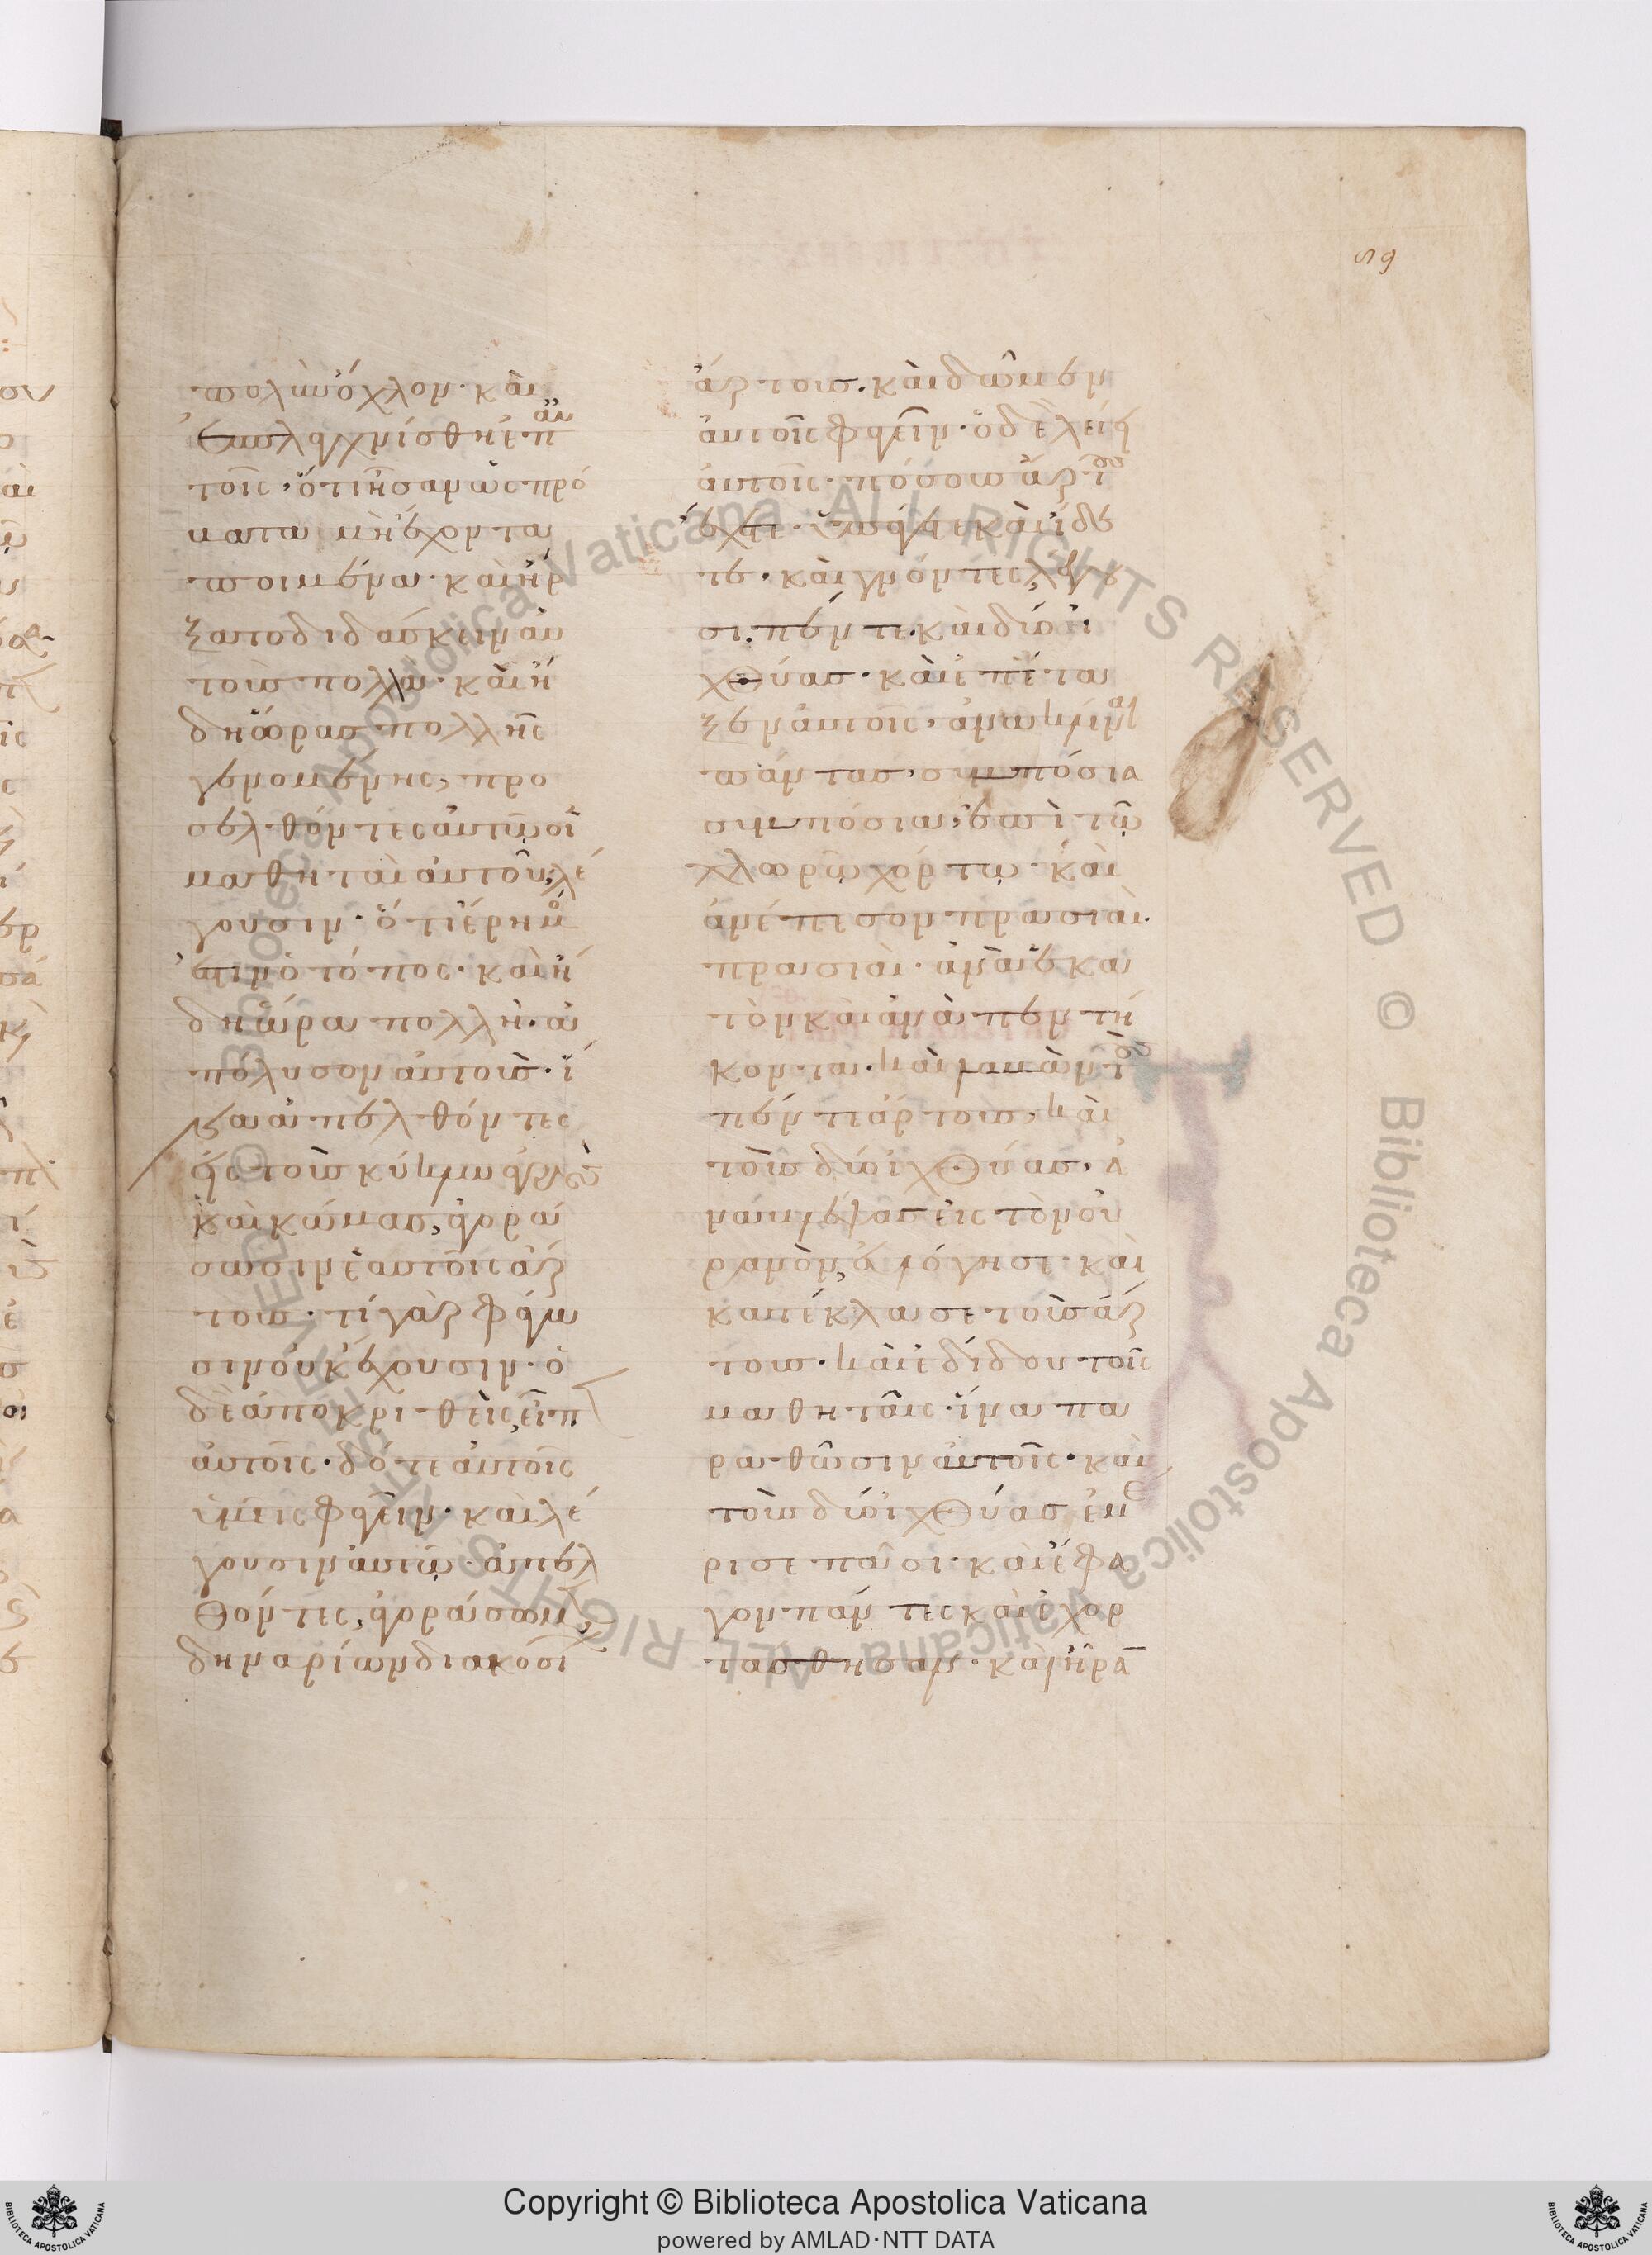 59
πολὺν ὄχλον· καὶ
ἐσπλαγχνίσθη ἐπ αὐ
τοῖς, ὅτι ἦσαν ὡς πρό
βατα μὴ ἔχοντα
ποιμένα· καὶ ἤρ
ξατο διδάσκειν αὐ
τοὺς πολλά· καὶ ἤ
δη ὥρας πολλῆς
γενομένης, προ
σελθόντες αὐτῷ οἱ
μαθηταὶ αὐτοῦ, λέ
γουσιν· ὅτι ἔρημός
ἐστιν ὁ τόπος· καὶ ἤ
δη ὥρα πολλή· ἀ
πόλυσον αὐτούς· ἵ
να ἀπελθόντες
εἰς τοὺς κύκλῳ ἀγροὺς
καὶ κώμας, ἀγορά
σωσιν ἑαυτοῖς ἄρ
τους· τί γὰρ φάγω
σιν οὐκ ἔχουσιν· ὁ
δὲ ἀποκριθεὶς, εἶπ
αὐτοῖς· δότε αὐτοῖς
ὑμεῖς φαγεῖν· καὶ λέ
γουσιν αὐτῷ· ἀπελ
θόντες, ἀγοράσωμεν
δηναρίων διακοσί
ἄρτους· καὶ δῶμεν
αὐτοῖς φαγεῖν· ὁ δὲ λέγει
αὐτοῖς· πόσους ἄρτους
ἔχετε· ὑπάγετε καὶ ἴδε
τε· καὶ γνόντες, λέγου
σι· πέντε· καὶ δύο ἰ
χθύας· καὶ ἐπέτα
ξεν αὐτοῖς, ἀνακλῖναι
πάντας, συμπόσια
συμπόσια, ἐπὶ τῷ
χλωρῷ χόρτῳ· καὶ
ἀνέπεσον πρασιαὶ·
πρασιαὶ· ἀνὰ ἑκα
τὸν καὶ ἀνὰ πεντή
κοντα· καὶ λαβὼν τοὺς
πέντε ἄρτους, καὶ
τοὺς δύο ἰχθύας, ἀ
ναβλέψας εἰς τὸν οὐ
ρανὸν, εὐλόγησε· καὶ
κατέκλασε τοὺς ἄρ
τους· καὶ ἐδίδου τοῖς
μαθηταῖς· ἵνα πα
ραθῶσιν αὐτοῖς· καὶ
τοὺς δύο ἰχθύας ἐμέ
ρισε πᾶσι· καὶ ἔφα
γον πάντες καὶ ἐχορ
τάσθησαν· καὶ ἦραν
Copyright © Biblioteca Apostolica Vaticana
powered by AMLAD·NTT DATA
© Biblioteca Apostolica Vaticana ALL RIGHTS RESERVED © Biblioteca Apostolica Vaticana ALL RIGHTS RESERVED
BIBLIOTECA APOSTOLICA VATICANA
BIBLIOTECA APOSTOLICA VATICANA